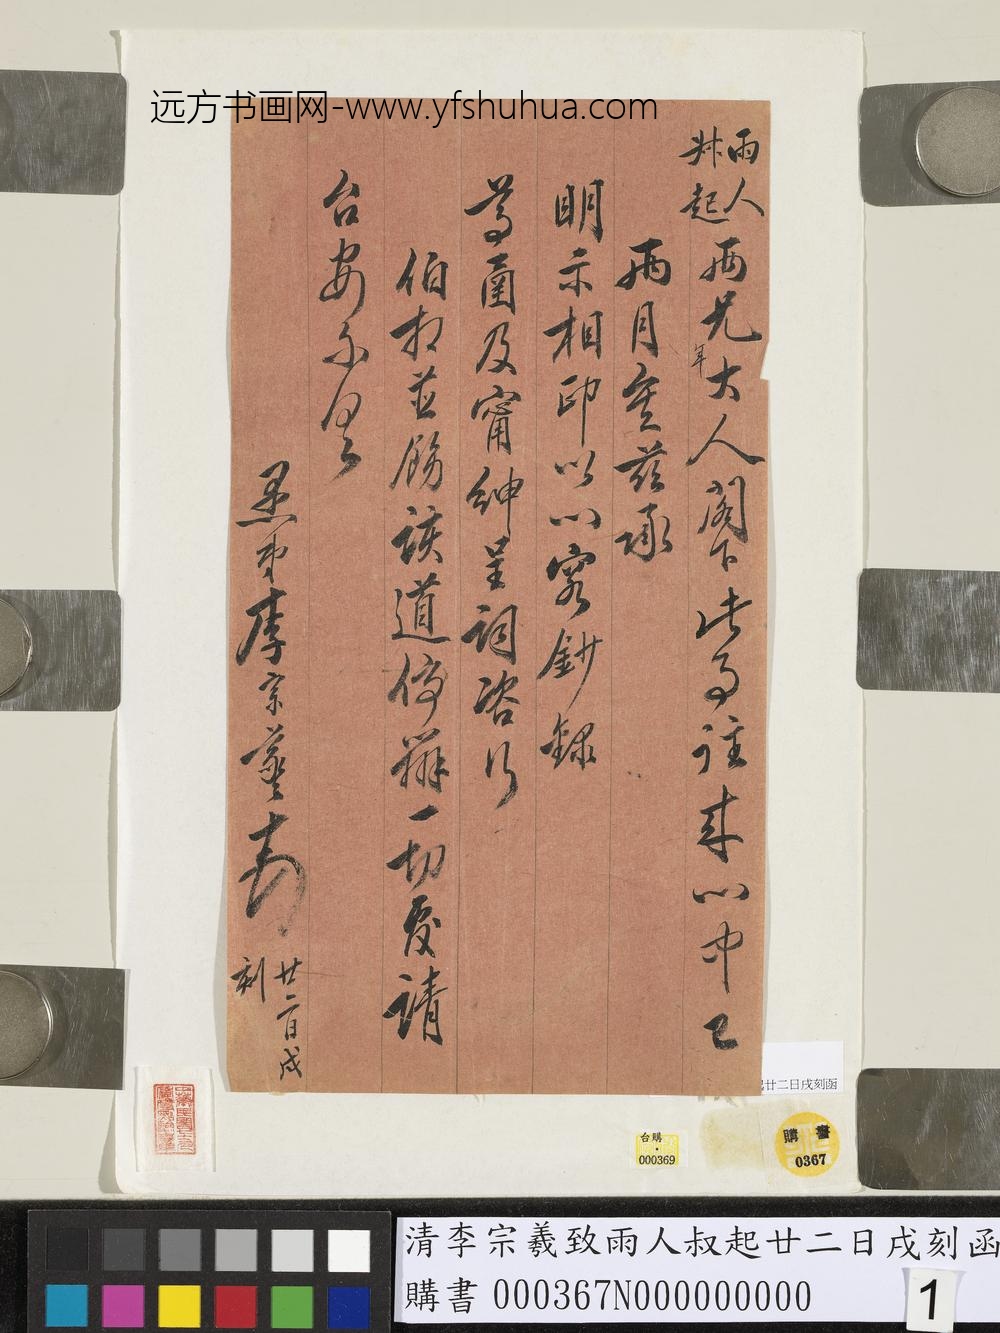 远方书画网-www.yfshuhua.com
雨人
叔起
两兄大人阁下此事往来心中已
年
两月矣兹承
明示相印以心容鈔錄
尊函及甯紳呈詞咨行
伯相並飭該道停辦一切覆請
台安不具
愚弟李宗羲頓
廿二日戌
刻
起廿二日戌刻函
台購
000369
購書
0367
清李宗羲致雨人叔起廿二日戌刻函
購書000367N000000000
1